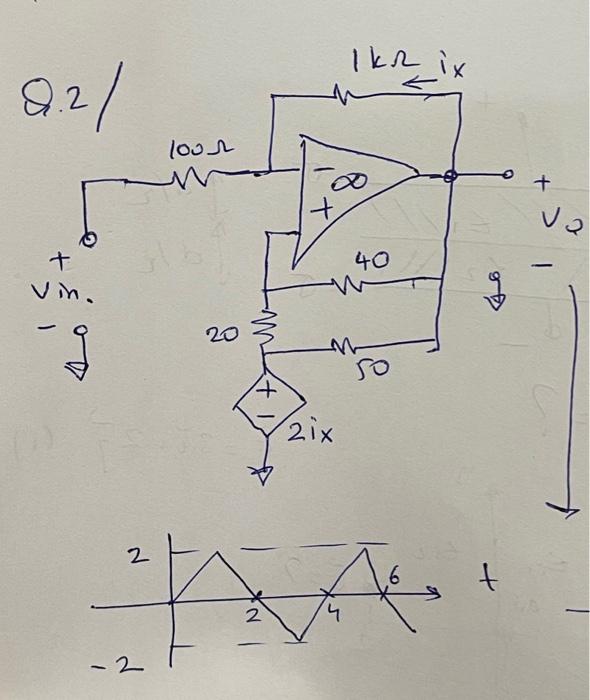 Q.2/
1kΩ ix
100Ω
-
∞
+
+
Vo
-
+
Vin.
-
40
20
50
+
-
2ix
2
6
t
2
4
-2